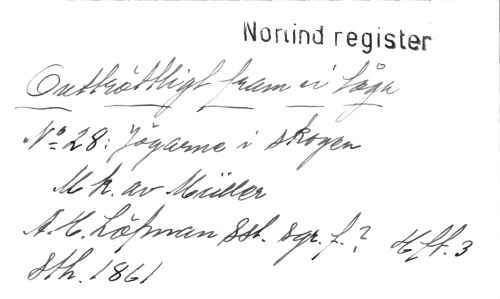 Norlind register
Outtröttligt fram vi tåga
No 28: Jägarne i skogen
M k. av Müller
A. H. Löfman Sst. sgr. f.? Hft. 3
Sth. 1861